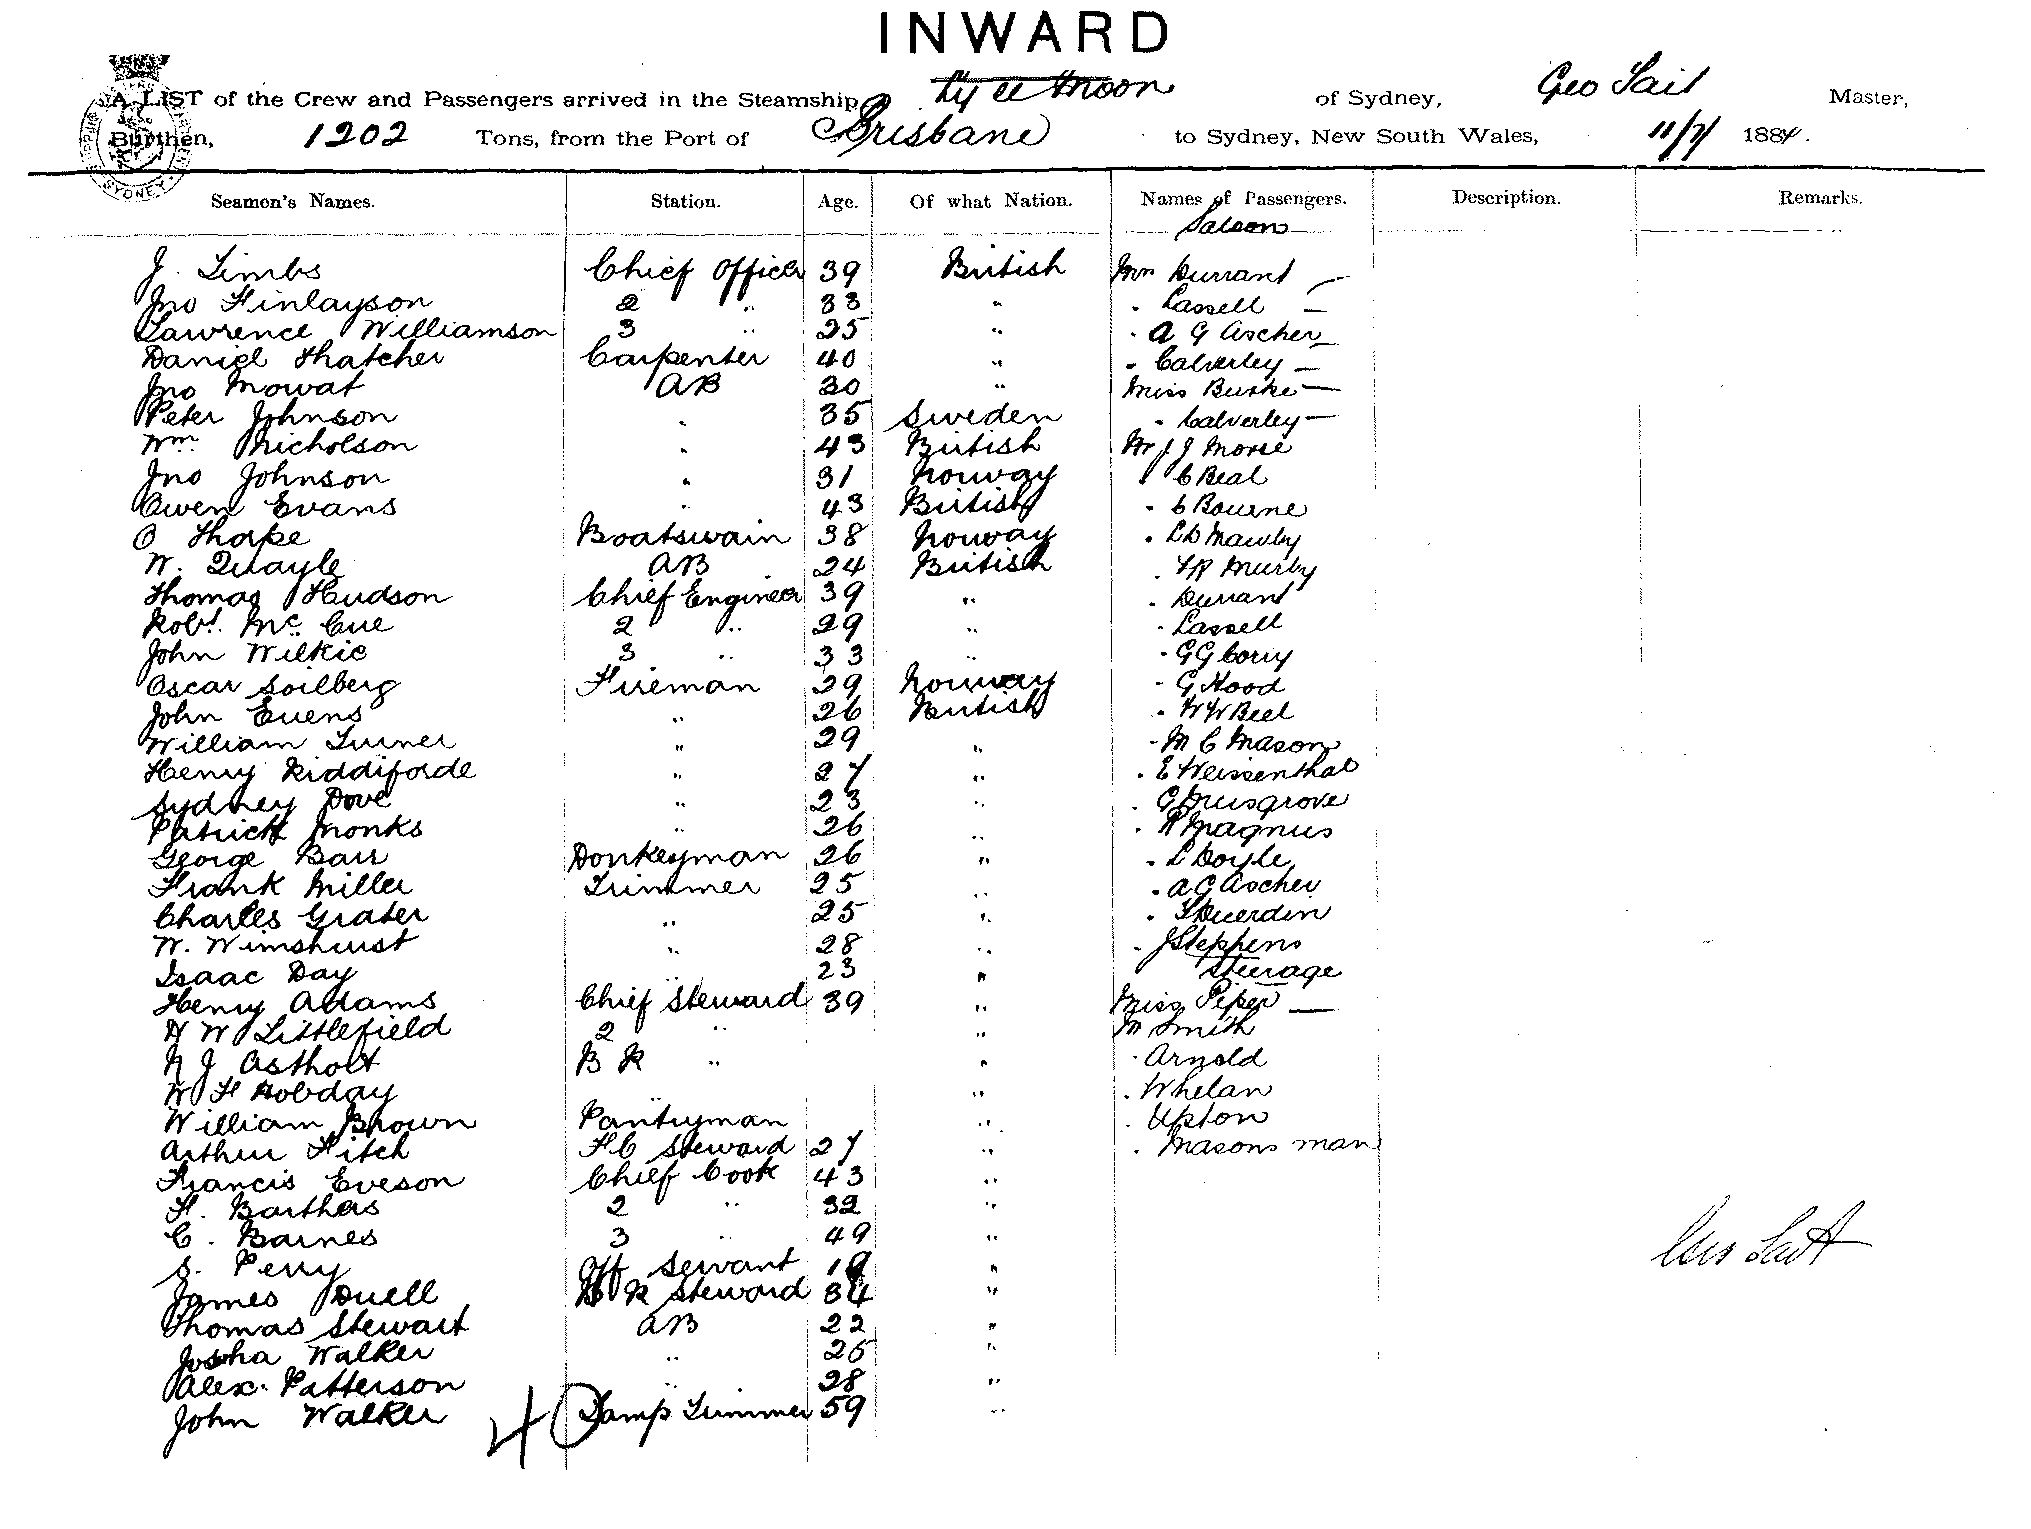 INWARD
A LIST of the Crew and Passengers arrived in the Steamship Ly ee Moon of Sydney, Geo Sait Master,
Burthen, 1202 Tons, from the Port of Brisbane to Sydney, New South Wales, 11/7/ 1884.
SYDNEY
Seamen's Names. Station. Age. Of what Nation. Names of Passengers. Description. Remarks.
Saloon
J. Timbs Chief Officer 39 British Mrs Durrant —
Jno Finlayson 2 " 33 " " Lassell —
Lawrence Williamson 3 " 25 " " A G Ascher —
Daniel Thatcher Carpenter 40 " " Calverley —
Jno Mowat AB 30 " Miss Burke —
Peter Johnson " 35 Sweden " Calverley —
Wm. Nicholson " 43 British Mr J J Morse
Jno Johnson " 31 Norway " C Beal
Owen Evans " 43 British " C Bourne
O Thorpe Boatswain 38 Norway " L D Mawby
W. Quayle AB 24 British " Murby
Thomas Hudson Chief Engineer 39 " " Durrant
Robt. Mc Cue 2 " 29 " " Lassell
John Wilkie 3 " 33 " " G G Corry
Oscar Soilberg Fireman 29 Norway " G Hood
John Evens " 26 British " W W Beel
William Turner " 29 " " M C Mason
Henry Riddiforde " 27 " " E Weissenthal
Sydney Dove " 23 " " G Musgrove
Patrick Monks " 26 " " Magnus
George Barr Donkeyman 26 " " L Doyle
Frank Miller Trimmer 25 " " A G Ascher
Charles Grater " 25 " " Duerdin
W. Wimshurst " 28 " " J Stephens
Isaac Day " 23 " Steerage
Henry Adams Chief Steward 39 " Miss Piper —
H W Littlefield 2 " " M Smith
J Astholt B R " " " Arnold
W H Hobday " " Whelan
William Brown Pantryman " " Upton
Arthur Fitch F C Steward 27 " " Masons man
Francis Eveson Chief Cook 43 "
F. Barthas 2 " 32 "
C. Barnes 3 " 49 "
S. Perry Off Servant 19 "
James Duell B R Steward 34 "
Thomas Stewart AB 22 "
Joseha Walker " 25 "
Alex. Patterson " 28 "
John Walker Lamp Trimmer 59 "
40
Geo Sait